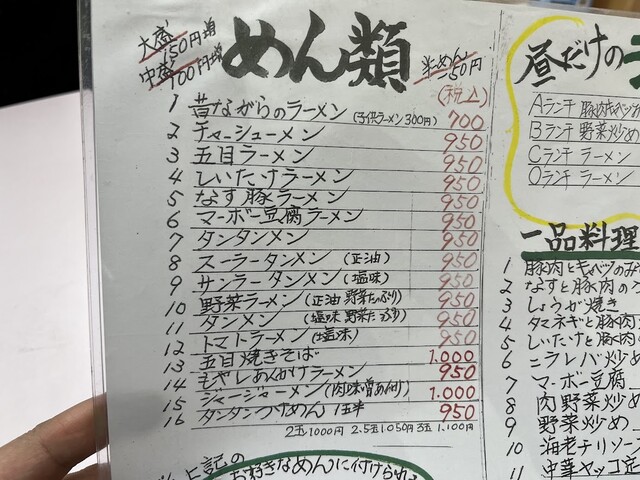 大盛150円増
中盛100円増
めん類
半めん
50円
(税込)
1 昔ながらのラーメン(子供ラーメン300円) 700
2 チャーシューメン 950
3 五目ラーメン 950
4 しいたけラーメン 950
5 なす豚ラーメン 950
6 マーボー豆腐ラーメン 950
7 タンタンメン 950
8 スーラータンメン(正油) 950
9 サンラータンメン(塩味) 950
10 野菜ラーメン(正油 野菜たっぷり) 950
11 タンメン(塩味 野菜たっぷり) 950
12 トマトラーメン(塩味) 950
13 五目焼きそば 1.000
14 もやしあんかけラーメン 950
15 ジャージャーメン(肉味噌あん付) 1.000
16 タンタンつけめん 1玉半 950
2玉1000円 2.5玉1050円 3玉1.100円
上記の
お好きなめんに付けられる
昼だけの
Aランチ 豚肉キャベツ
Bランチ 野菜炒め
Cランチ ラーメン
Dランチ ラーメン
一品料理
1 豚肉とキャベツのみ
2 なすと豚肉の
3 しょうが焼き
4 タマネギと豚肉
5 しいたけと豚肉の
6 ニラレバ炒め
7 マーボー豆腐
8 肉野菜炒め
9 野菜炒め
10 海老チリソース
11 中華ヤッコ定